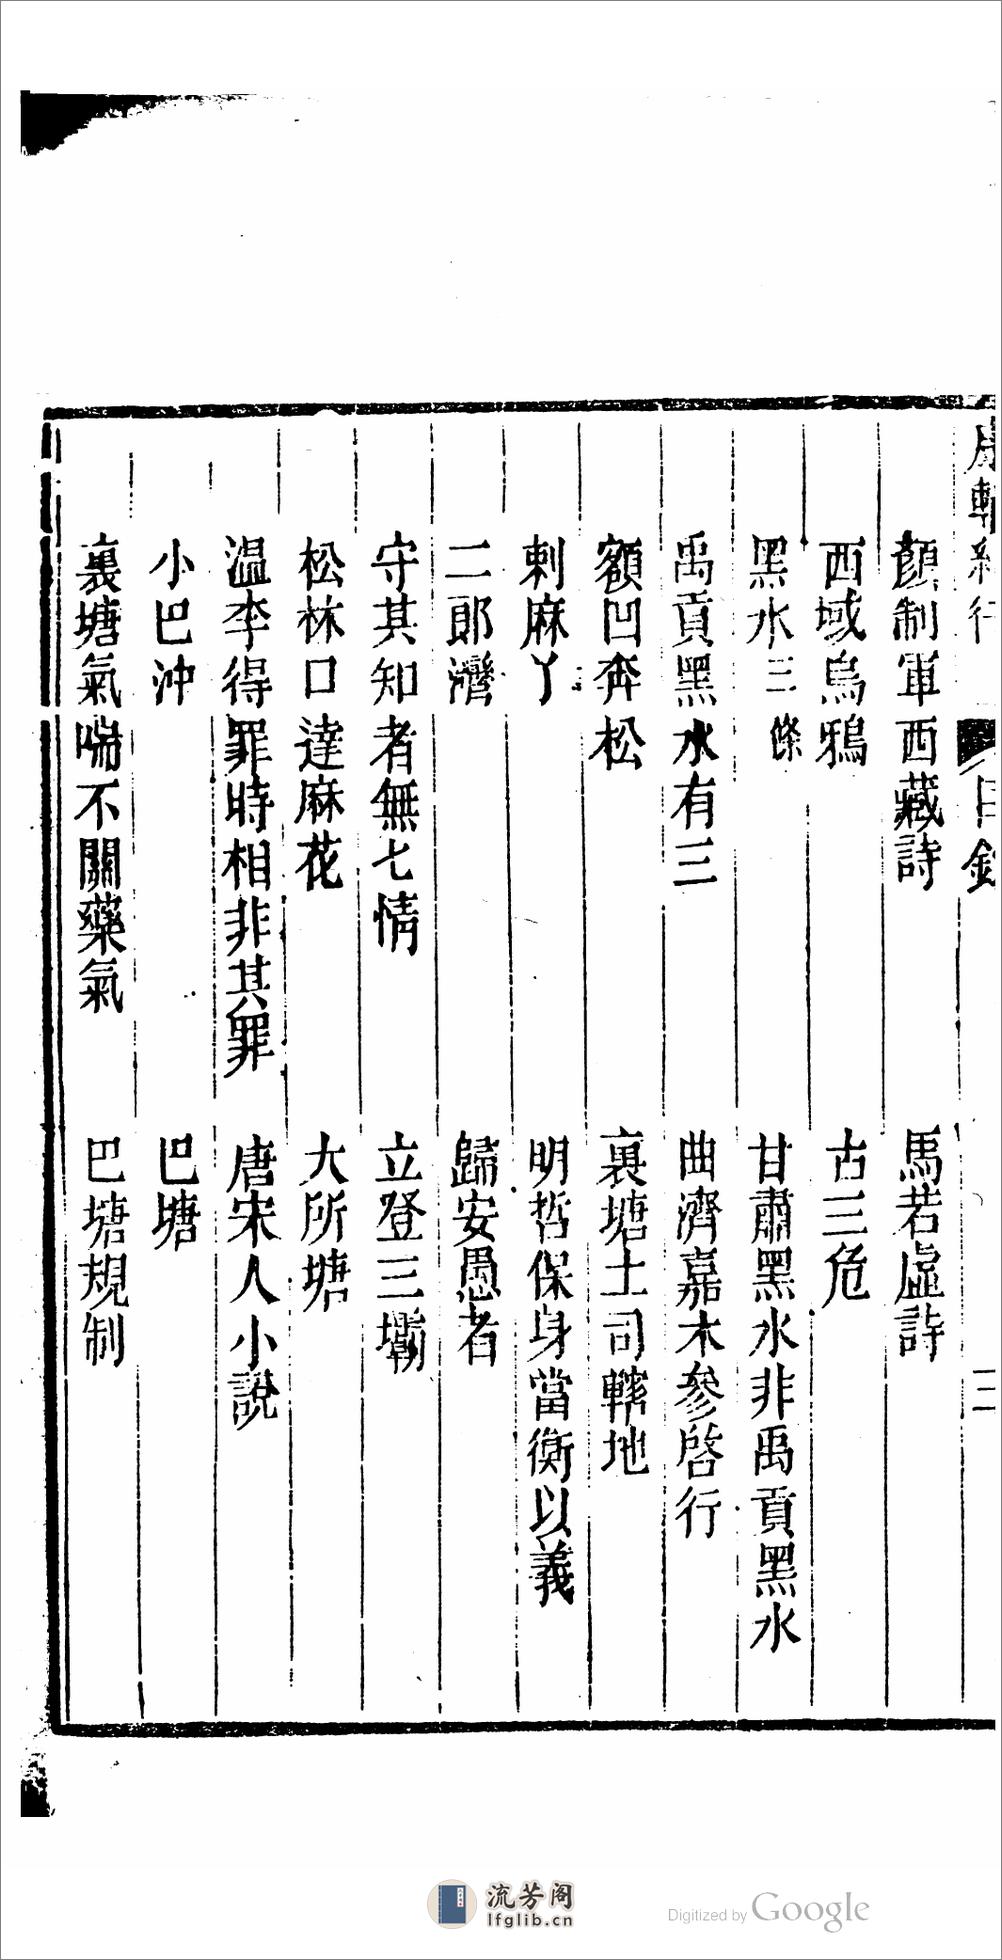 康輶紀行　目錄　二
顏制軍西藏詩　馬若虛詩
西域烏鴉　古三危
黑水三條　甘肅黑水非禹貢黑水
禹貢黑水有三　曲濟嘉木參啓行
額凹奔松　裏塘土司轄地
剌麻丫　明哲保身當衡以義
二郎灣　歸安愚者
守其知者無七情　立登三壩
松林口達麻花　大所塘
温李得罪時相非其罪　唐宋人小說
小巴沖　巴塘
裏塘氣喘不關藥氣　巴塘規制
流芳閣
lfglib.cn
Digitized by Google